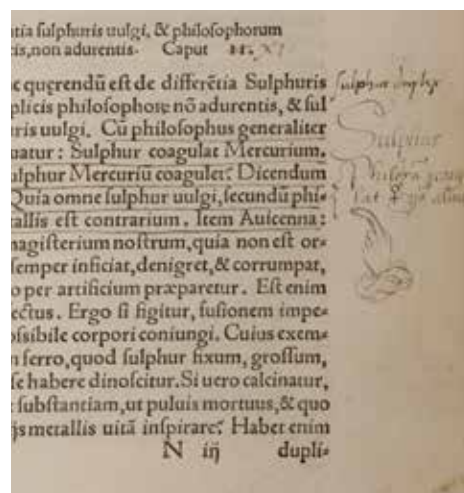 tia sulphuris uulgi, & philosophorum
is, non adurentis. Caput II. XI
querendū est de differētia Sulphuris
plicis philosophorū nō adurentis, & sul
ris uulgi. Cū philosophus generaliter
uatur: Sulphur coagulat Mercurium.
ulphur Mercuriū coagulet? Dicendum
Quia omne sulphur uulgi, secundū phi-
allis est contrarium. Item Auicenna:
magisterium nostrum, quia non est or-
semper inficiat, denigret, & corrumpat,
o per artificium præparetur. Est enim
ectus. Ergo si figitur, fusionem impe-
ossibile corpori coniungi. Cuius exem-
n ferro, quod sulphur fixum, grossum,
se habere dinoscitur. Si uero calcinatur,
substantiam, ut puluis mortuus, & quo
ijs metallis uitā inspirare? Habet enim
N iij dupli-
sulphur duplex
Sulphur